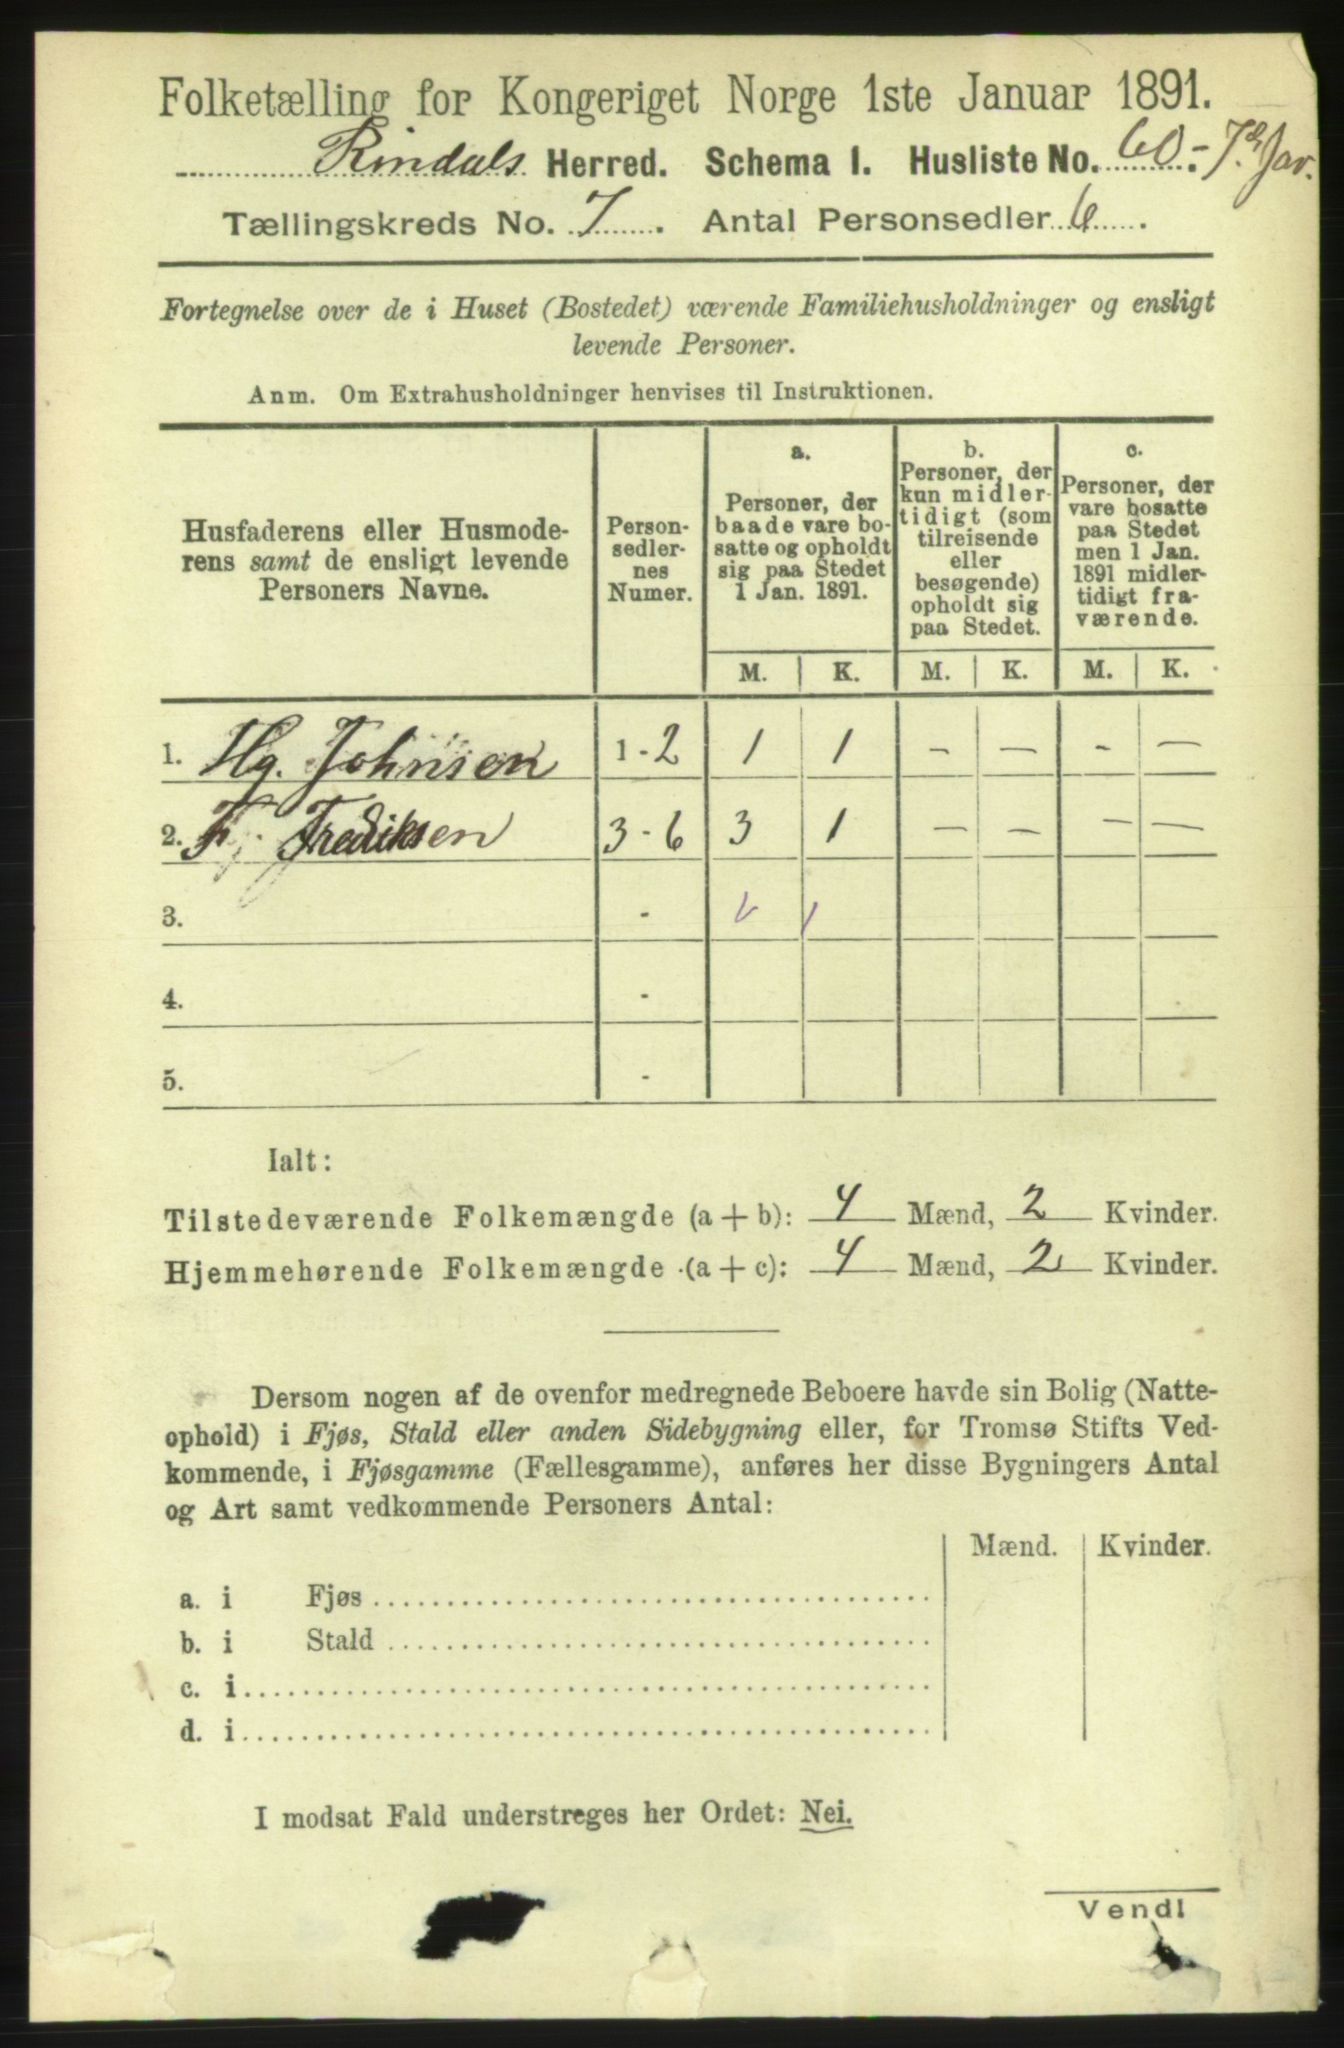 Folketælling for Kongeriget Norge 1ste Januar 1891.
Rindals Herred. Schema I. Husliste No. 60.- 7de Jav.
Tællingskreds No. 7. Antal Personsedler 6.
Fortegnelse over de i Huset (Bostedet) værende Familiehusholdninger og ensligt
levende Personer.
Anm. Om Extrahusholdninger henvises til Instruktionen.
Husfaderens eller Husmode-
rens samt de ensligt levende
Personers Navne.
Person-
sedler-
nes
Numer.
a.
Personer, der
baade vare bo-
satte og opholdt
sig paa Stedet
1 Jan. 1891.
b.
Personer, der
kun midler-
tidigt (som
tilreisende
eller
besøgende)
opholdt sig
paa Stedet.
c.
Personer, der
vare bosatte
paa Stedet
men 1 Jan.
1891 midler-
tidigt fra-
værende.
M. K. M. K. M. K.
1. Hg. Johnsen 1 - 2 1 1 — — — —
2. F. Frediksen 3 - 6 3 1 — — — —
3. -
4. -
5. -
Ialt:
Tilstedeværende Folkemængde (a + b): 4 Mænd, 2 Kvinder.
Hjemmehørende Folkemængde (a + c): 4 Mænd, 2 Kvinder.
Dersom nogen af de ovenfor medregnede Beboere havde sin Bolig (Natte-
ophold) i Fjøs, Stald eller anden Sidebygning eller, for Tromsø Stifts Ved-
kommende, i Fjøsgamme (Fællesgamme), anføres her disse Bygningers Antal
og Art samt vedkommende Personers Antal:
Mænd. Kvinder.
a. i Fjøs
b. i Stald
c. i
d. i
I modsat Fald understreges her Ordet: Nei.
Vend!